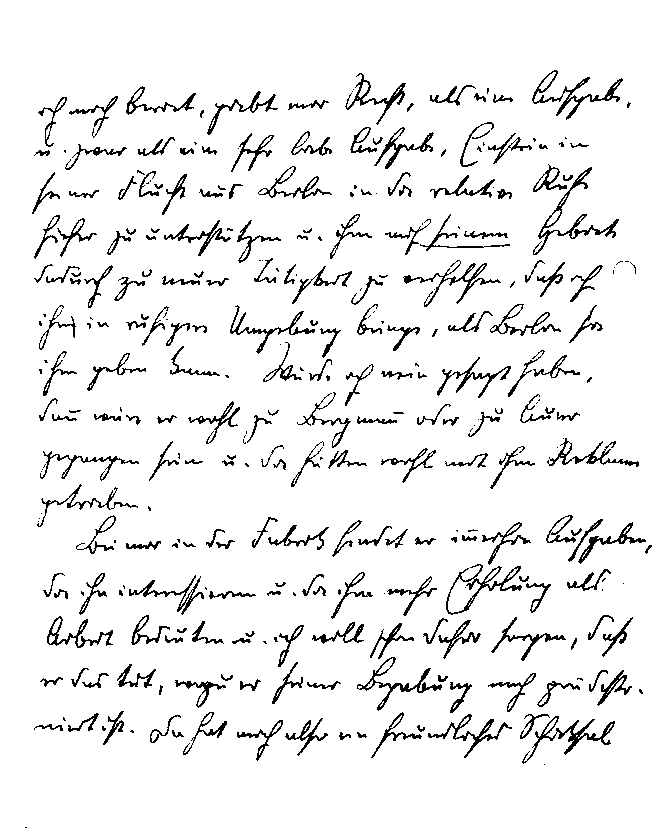 ich mich bereit, giebt mir Recht, als eine Aufgabe,
u. zwar als eine sehr liebe Aufgabe, Einstein in
seiner Flucht aus Berlin in die relative Ruhe
hieher zu unterstützen u. ihm auf seinem Gebiete
dadurch zu neuer Tätigkeit zu verhelfen, daß ich
ihn in ruhigere Umgebung bringe, als Berlin sie
ihm geben kann. Würde ich nein gesagt haben,
dann wäre er wohl zu Bergmann oder zu Auer
gegangen sein u. die hätten wohl mit ihm Reklame
getrieben.
Bei mir in der Fabrik findet er immerhin Aufgaben,
die ihn interessieren u. die ihm mehr Erholung als
Arbeit bedeuten u. ich will schon dafür sorgen, daß
er das tut, wozu er seiner Begabung nach prädesti-
niert ist. Da hat mich also ein freundliches Schicksal